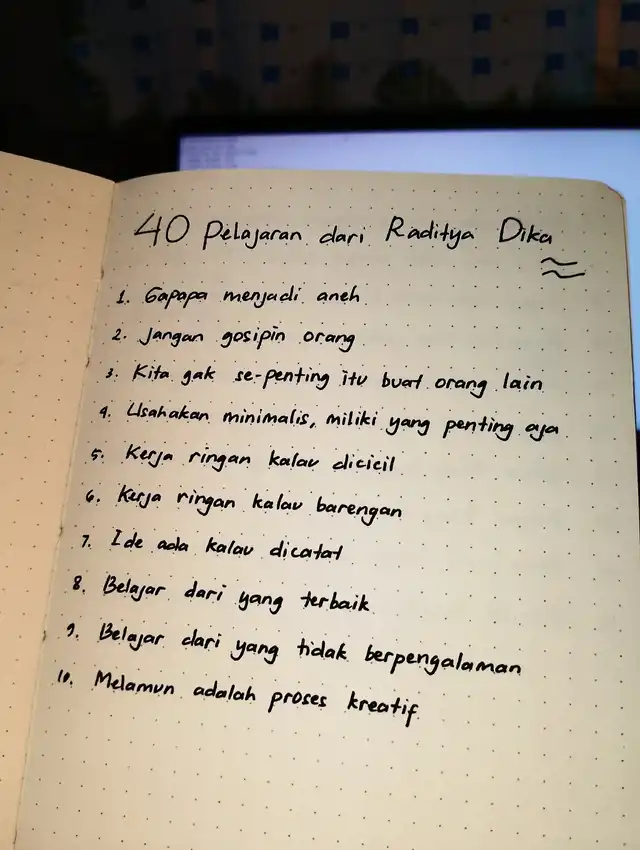 40 Pelajaran dari Raditya Dika
1. Gapapa menjadi aneh
2. Jangan gosipin orang
3. Kita gak se-penting itu buat orang lain
4. Usahakan minimalis, miliki yang penting aja
5. Kerja ringan kalau dicicil
6. Kerja ringan kalau barengan
7. Ide ada kalau dicatat
8. Belajar dari yang terbaik
9. Belajar dari yang tidak berpengalaman
10. Melamun adalah proses kreatif